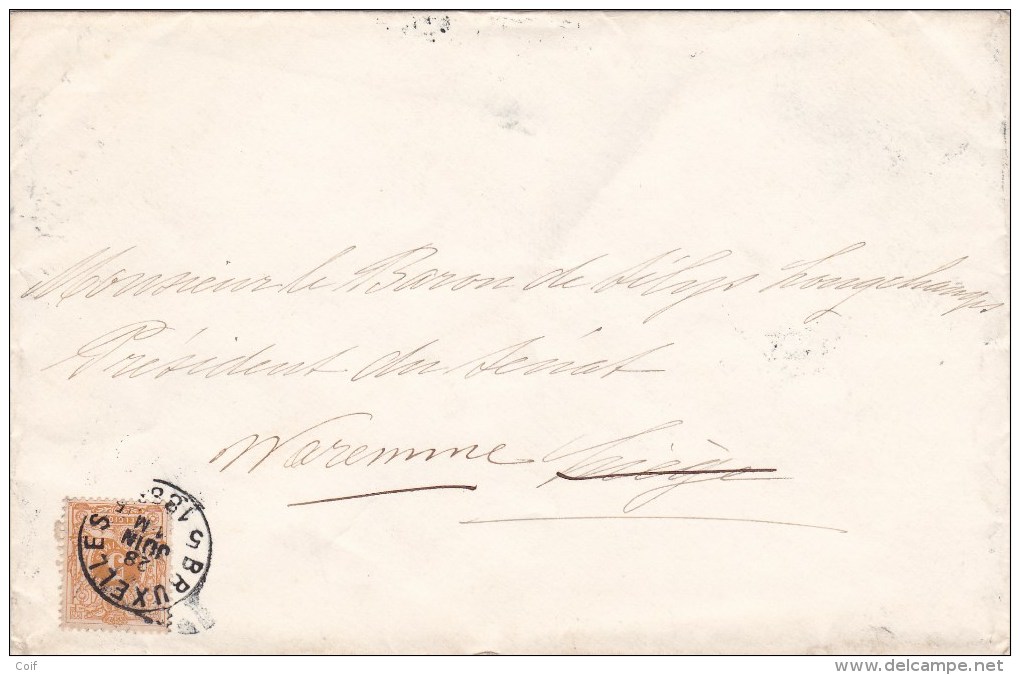 Monsieur le Baron de Sélys Longchamps
Président du Sénat
Waremme Liège
BRUXELLES 5
28
JUIN
1 M
Coif
www.delcampe.net